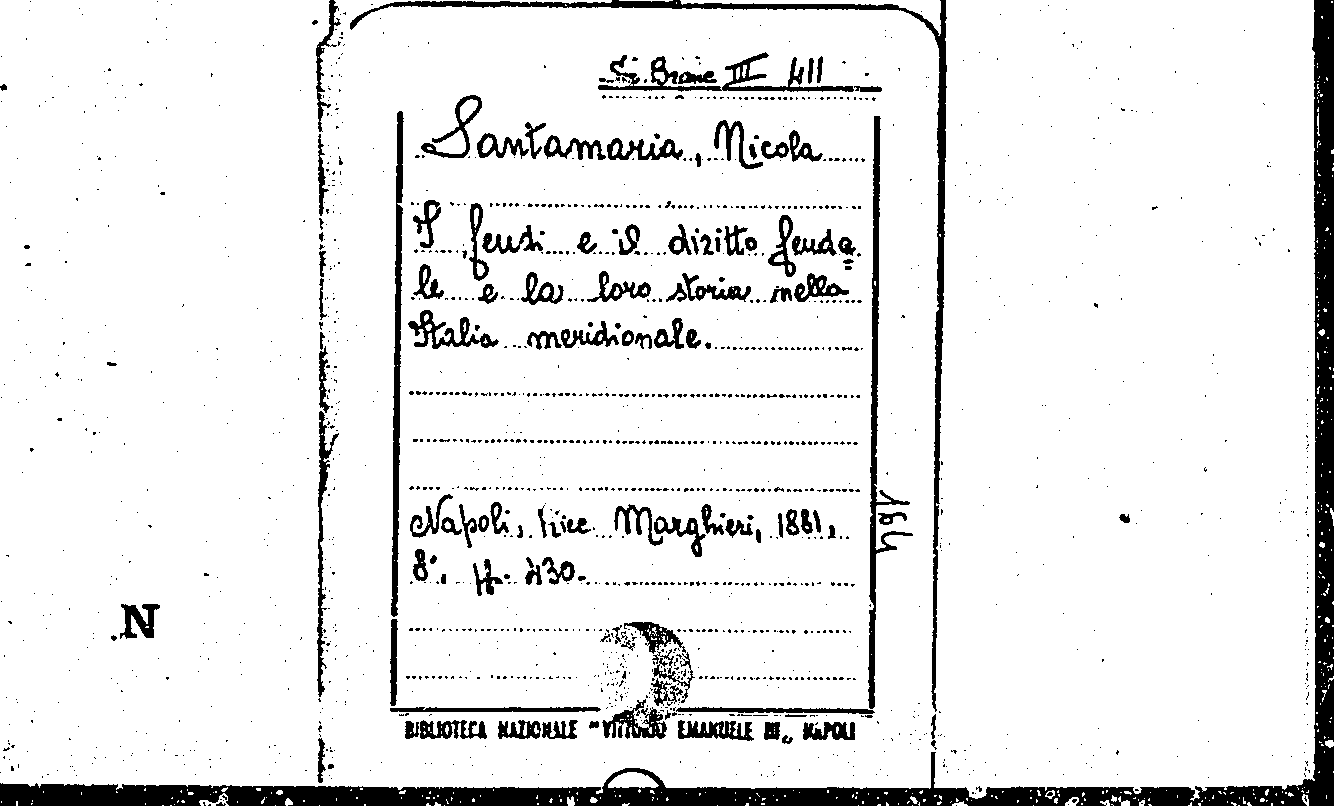 S. Branc III 411
Santamaria, Nicola
I feudi e il diritto feuda=
le e la loro storia nella
Italia meridionale.
Napoli, Ricc. Marghieri, 1881,
8°. pp. 430.
N
BIBLIOTECA NAZIONALE "VITTORIO EMANUELE III„ NAPOLI